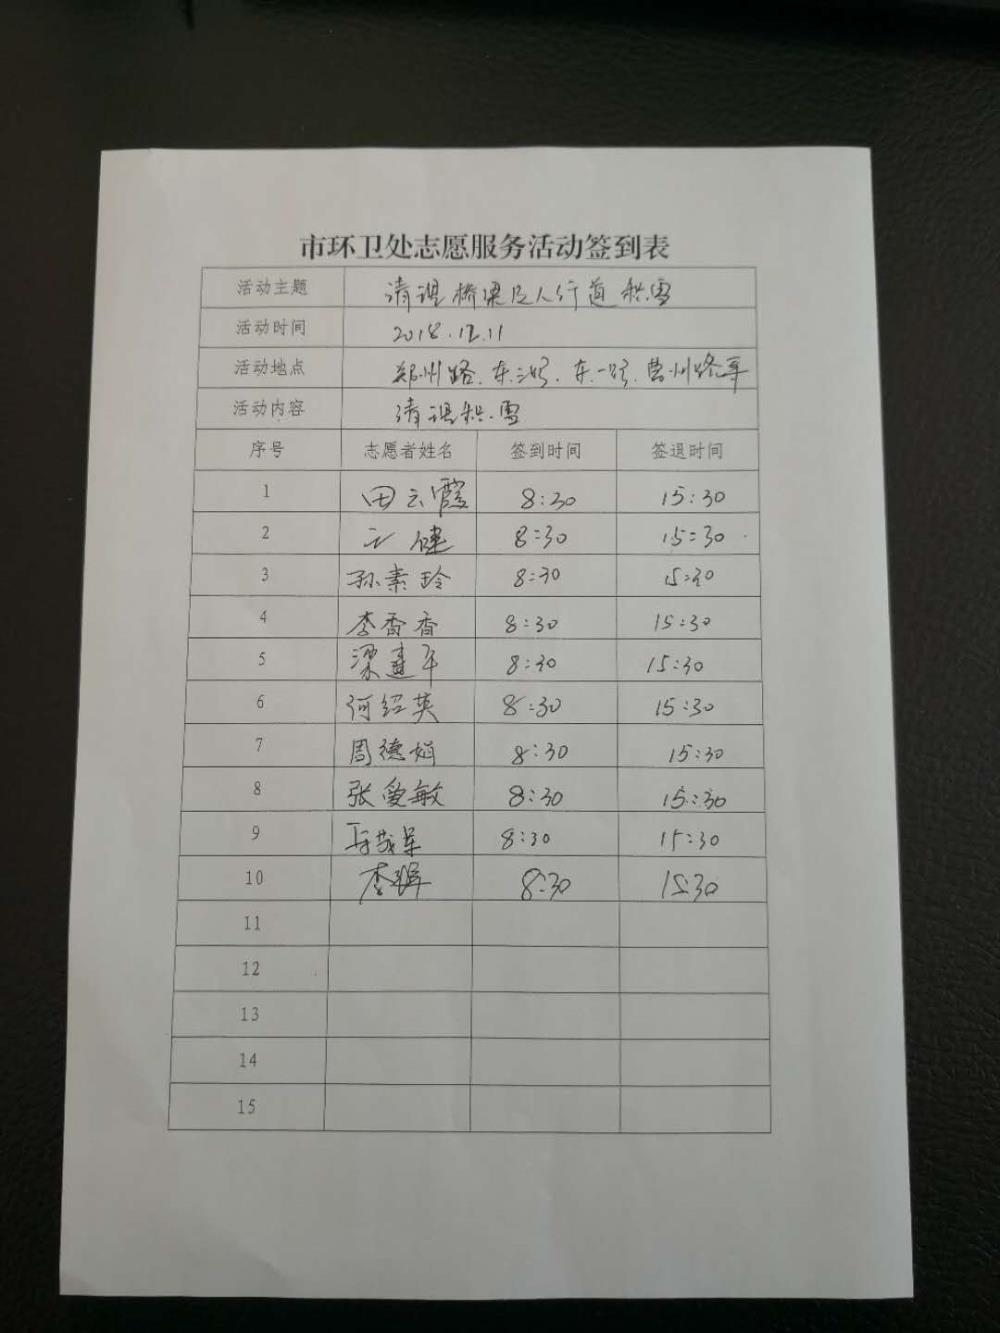 市环卫处志愿服务活动签到表
活动主题 清理桥梁及人行道积雪
活动时间 2018.12.11
活动地点 郑州路、东三路、东一路、曹州路等
活动内容 清理积雪
序号 志愿者姓名 签到时间 签退时间
1 田云霞 8:30 15:30
2 健 8:30 15:30
3 孙素玲 8:30 15:30
4 李香香 8:30 15:30
5 梁建军 8:30 15:30
6 何绍英 8:30 15:30
7 周德娟 8:30 15:30
8 张爱敏 8:30 15:30
9 8:30 15:30
10 李 8:30 15:30
11
12
13
14
15